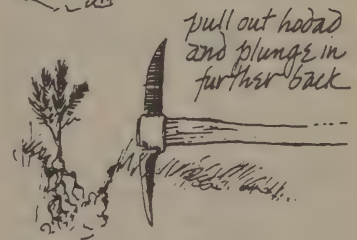 pull out hodad
and plunge in
further back